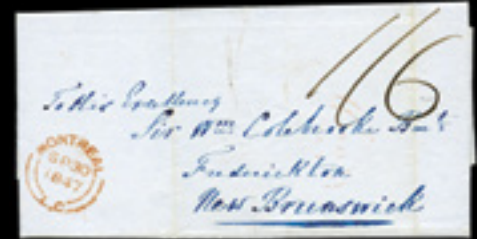 1/6
To His Excellency
Sir Wm Colebrooke Bart
Fredericton
New Brunswick
MONTREAL
SP 30
1847
L.C.